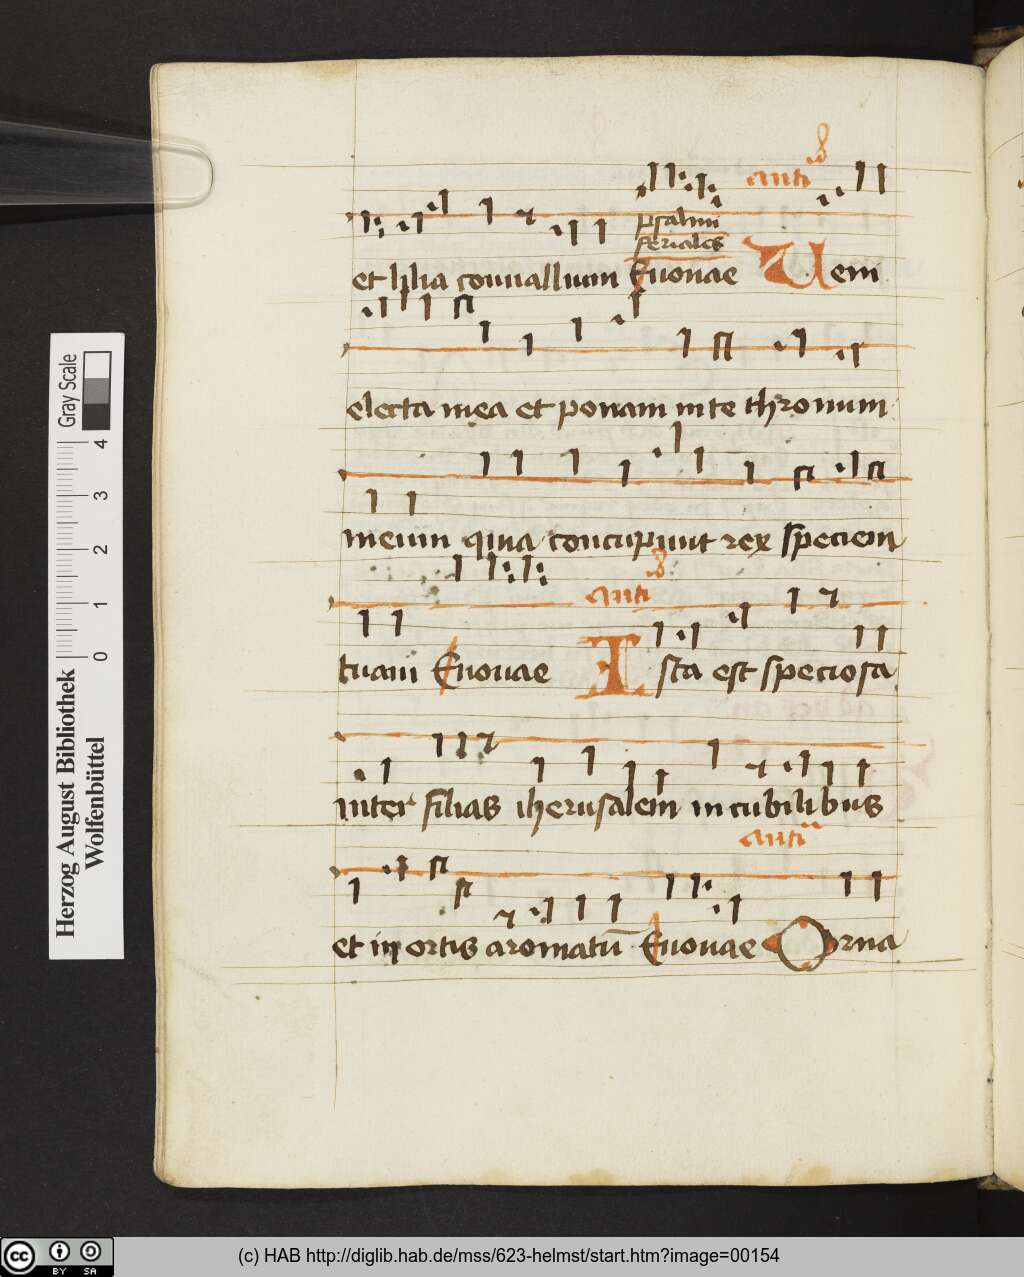 anti
psalmi
feriales
et lilia conuallium Euouae Uem
electa mea et ponam in te thronum
meum quia concupiuit rex speciem
anti
tuam Euouae Ista est speciosa
inter filias iherusalem in cubilibus
anti
et in ortis aromatū Euouae Orna
Gray Scale
0 1 2 3 4
Herzog August Bibliothek
Wolfenbüttel
cc BY SA
(c) HAB http://diglib.hab.de/mss/623-helmst/start.htm?image=00154